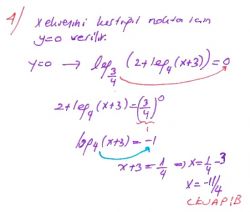 4) x eksenini kestiği nokta için
y=0 verilir.
y=0 → log_{3/4} (2+log₄(x+3))=0
2+log₄(x+3)=(3/4)⁰
1
log₄(x+3)=-1
x+3=1/4 ⇒ x=1/4-3
x=-11/4
CEVAP B